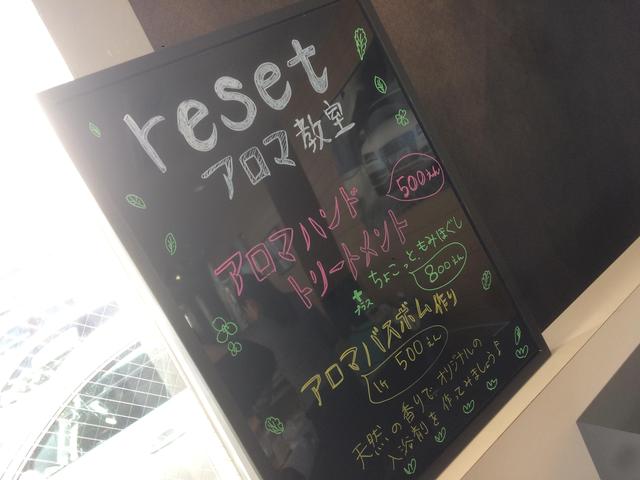 reset
アロマ教室
アロマハンド
トリートメント
500えん
+
プラス
ちょこっともみほぐし
800えん
アロマバスボム作り
1ケ 500えん
天然の香りで オリジナルの
入浴剤を作ってみましょう♪